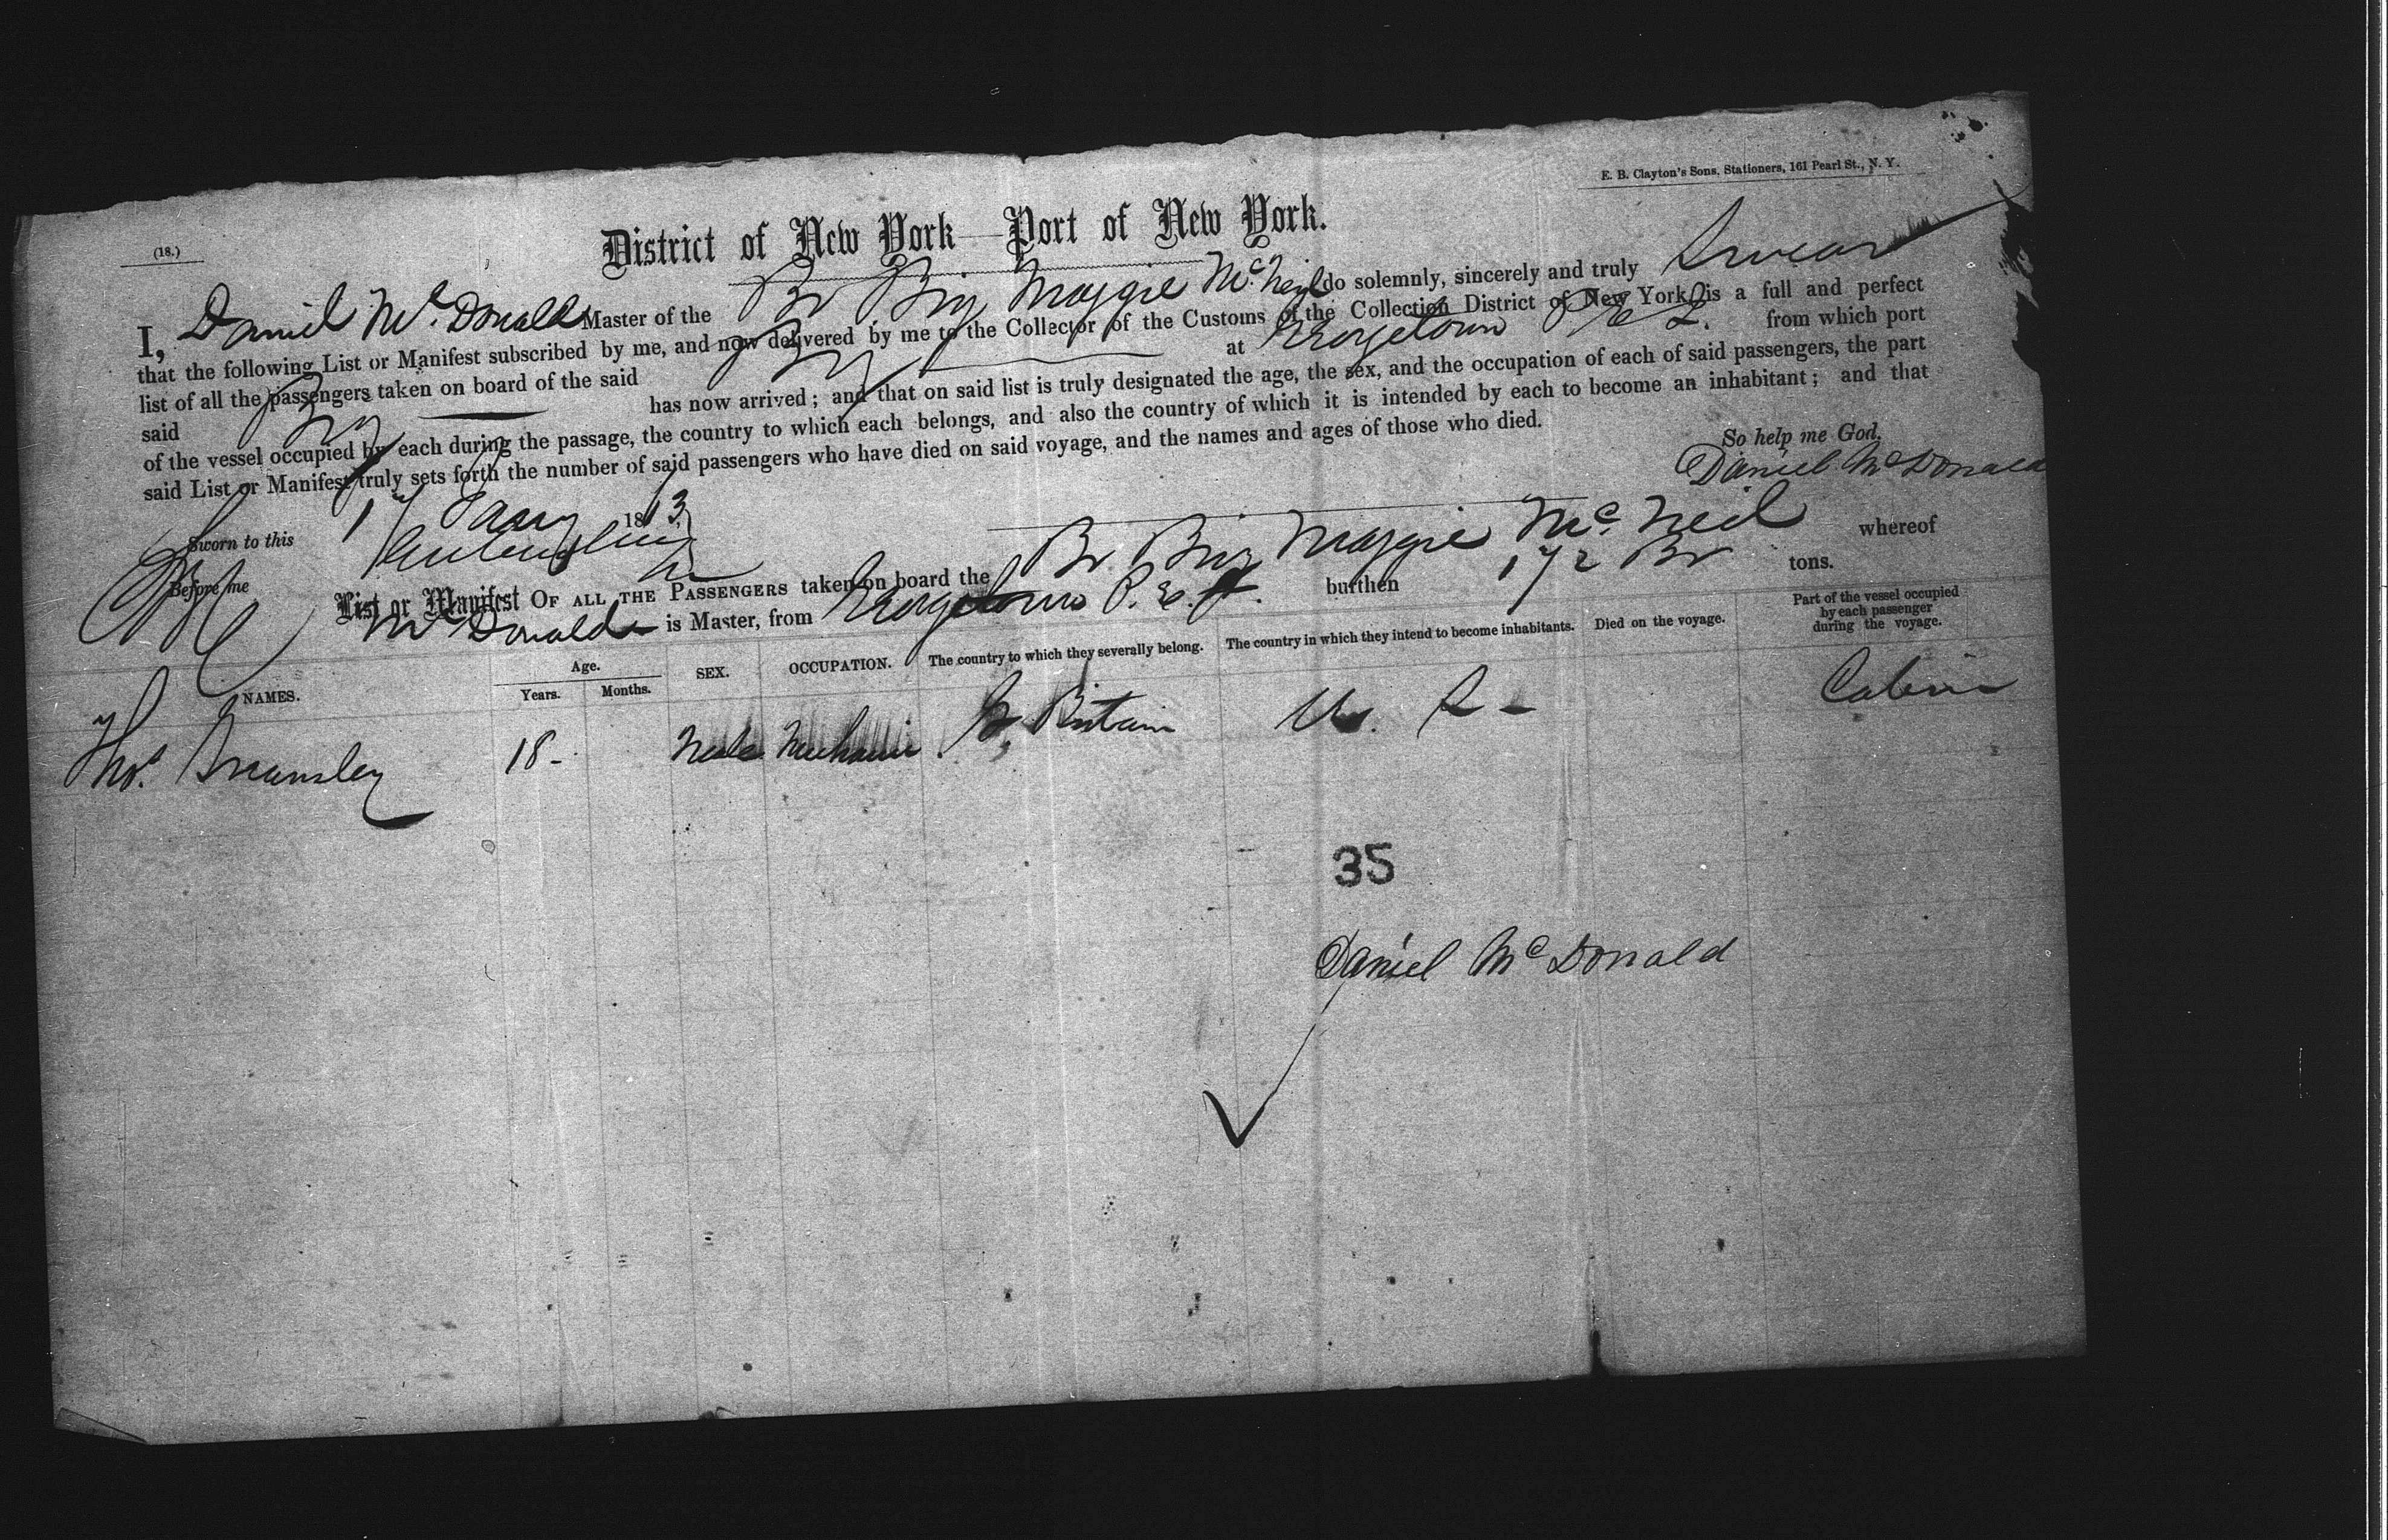 E. B. Clayton's Sons, Stationers, 161 Pearl St., N. Y.
(18.)
District of New York—Port of New York.
I, Daniel McDonald Master of the Br Brig Maggie McNeil do solemnly, sincerely and truly Swear
that the following List or Manifest subscribed by me, and now delivered by me to the Collector of the Customs of the Collection District of New York, is a full and perfect
list of all the passengers taken on board of the said Brig at Georgetown P E I. from which port
said Brig has now arrived; and that on said list is truly designated the age, the sex, and the occupation of each of said passengers, the part
of the vessel occupied by each during the passage, the country to which each belongs, and also the country of which it is intended by each to become an inhabitant; and that
said List or Manifest truly sets forth the number of said passengers who have died on said voyage, and the names and ages of those who died.
So help me God.
Daniel McDonald
Sworn to this 17 Jany 1863
Before me
List or Manifest OF ALL THE PASSENGERS taken on board the Br Brig Maggie McNeil whereof
McDonald is Master, from Georgetown P. E. I. burthen 172 Br tons.
NAMES. Age. Years. Months. SEX. OCCUPATION. The country to which they severally belong. The country in which they intend to become inhabitants. Died on the voyage. Part of the vessel occupied by each passenger during the voyage.
Thos. 18 Male Mechanic G. Britain U. S Cabin
35
Daniel McDonald